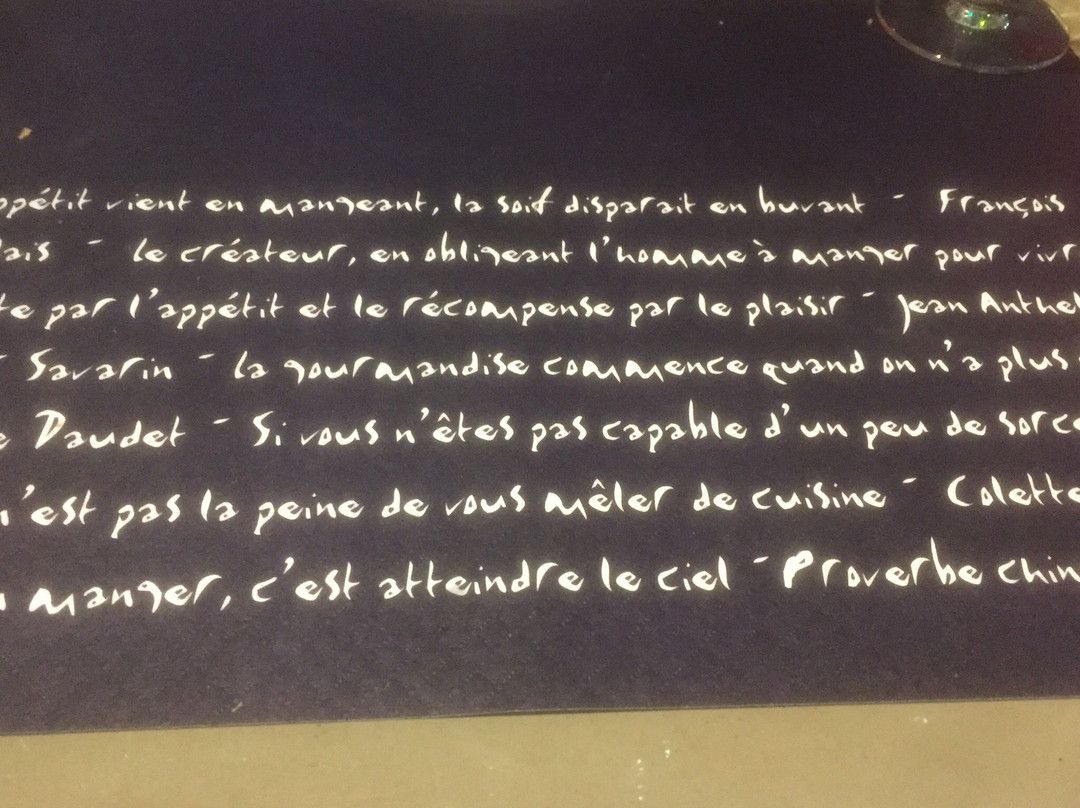 ppétit vient en mangeant, la soif disparait en buvant - François
lais - le créateur, en obligeant l'homme à manger pour vivr
te par l'appétit et le récompense par le plaisir - Jean Anthel
- Savarin - la gourmandise commence quand on n'a plus
e Daudet - Si vous n'êtes pas capable d'un peu de sorce
n'est pas la peine de vous mêler de cuisine - Colette
manger, c'est atteindre le ciel - Proverbe chin